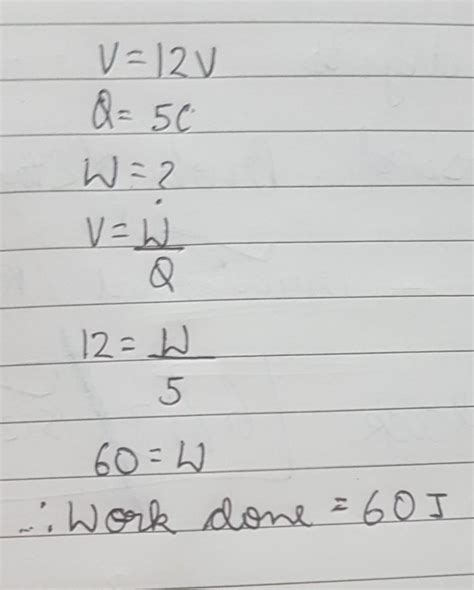 V=12V
Q= 5C
W=?
V=W
Q
12=W
5
60=W
∴ Work done = 60J